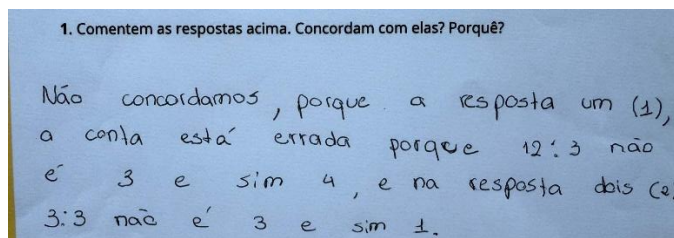 1. Comentem as respostas acima. Concordam com elas? Porquê?
Não concordamos, porque a resposta um (1),
a conta está errada porque 12:3 não
é 3 e sim 4, e na resposta dois (2
3:3 não é 3 e sim 1.